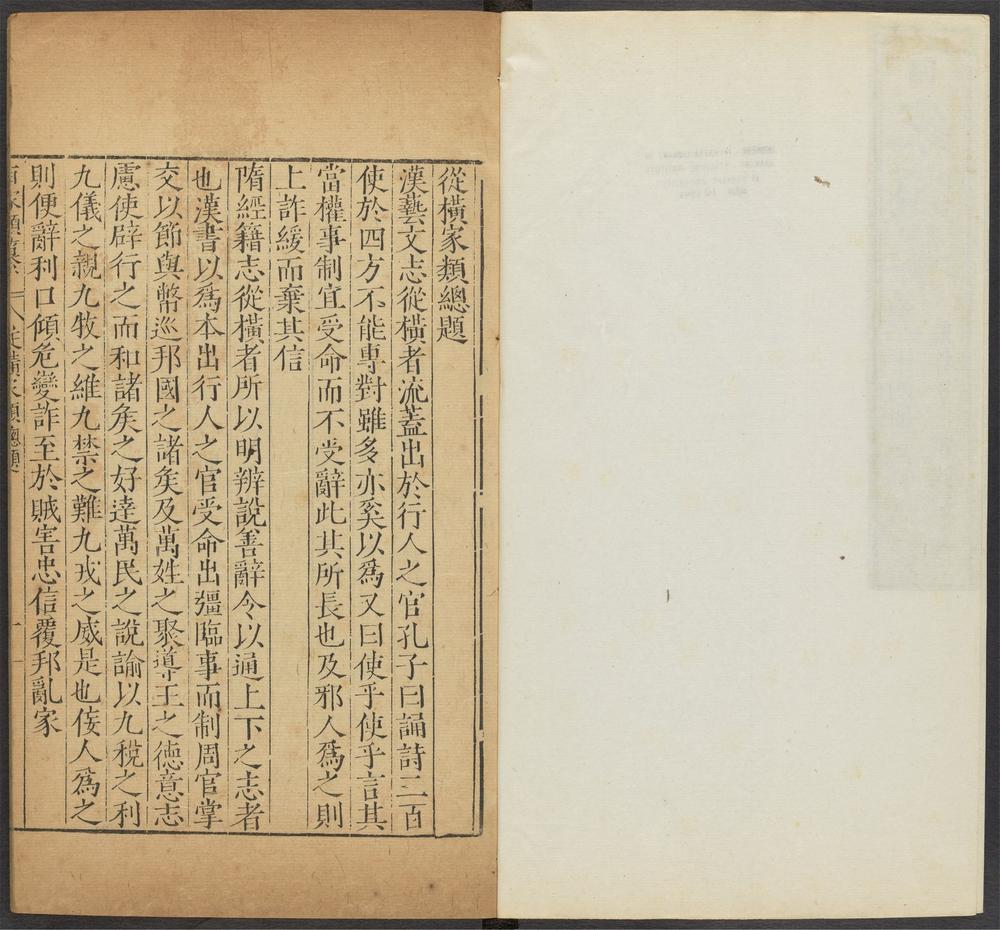 從橫家類總題
漢藝文志從橫者流蓋出於行人之官孔子曰誦詩三百
使於四方不能專對雖多亦奚以爲又曰使乎使乎言其
當權事制宜受命而不受辭此其所長也及邪人爲之則
上詐緩而棄其信
隋經籍志從橫者所以明辨說善辭令以通上下之志者
也漢書以爲本出行人之官受命出疆臨事而制周官掌
交以節與幣巡邦國之諸矦及萬姓之聚導王之德意志
慮使辟行之而和諸矦之好逹萬民之說諭以九稅之利
九儀之親九牧之維九禁之難九戎之威是也佞人爲之
則便辭利口傾危變詐至於賊害忠信覆邦亂家
家類纂 從橫家類總題 一